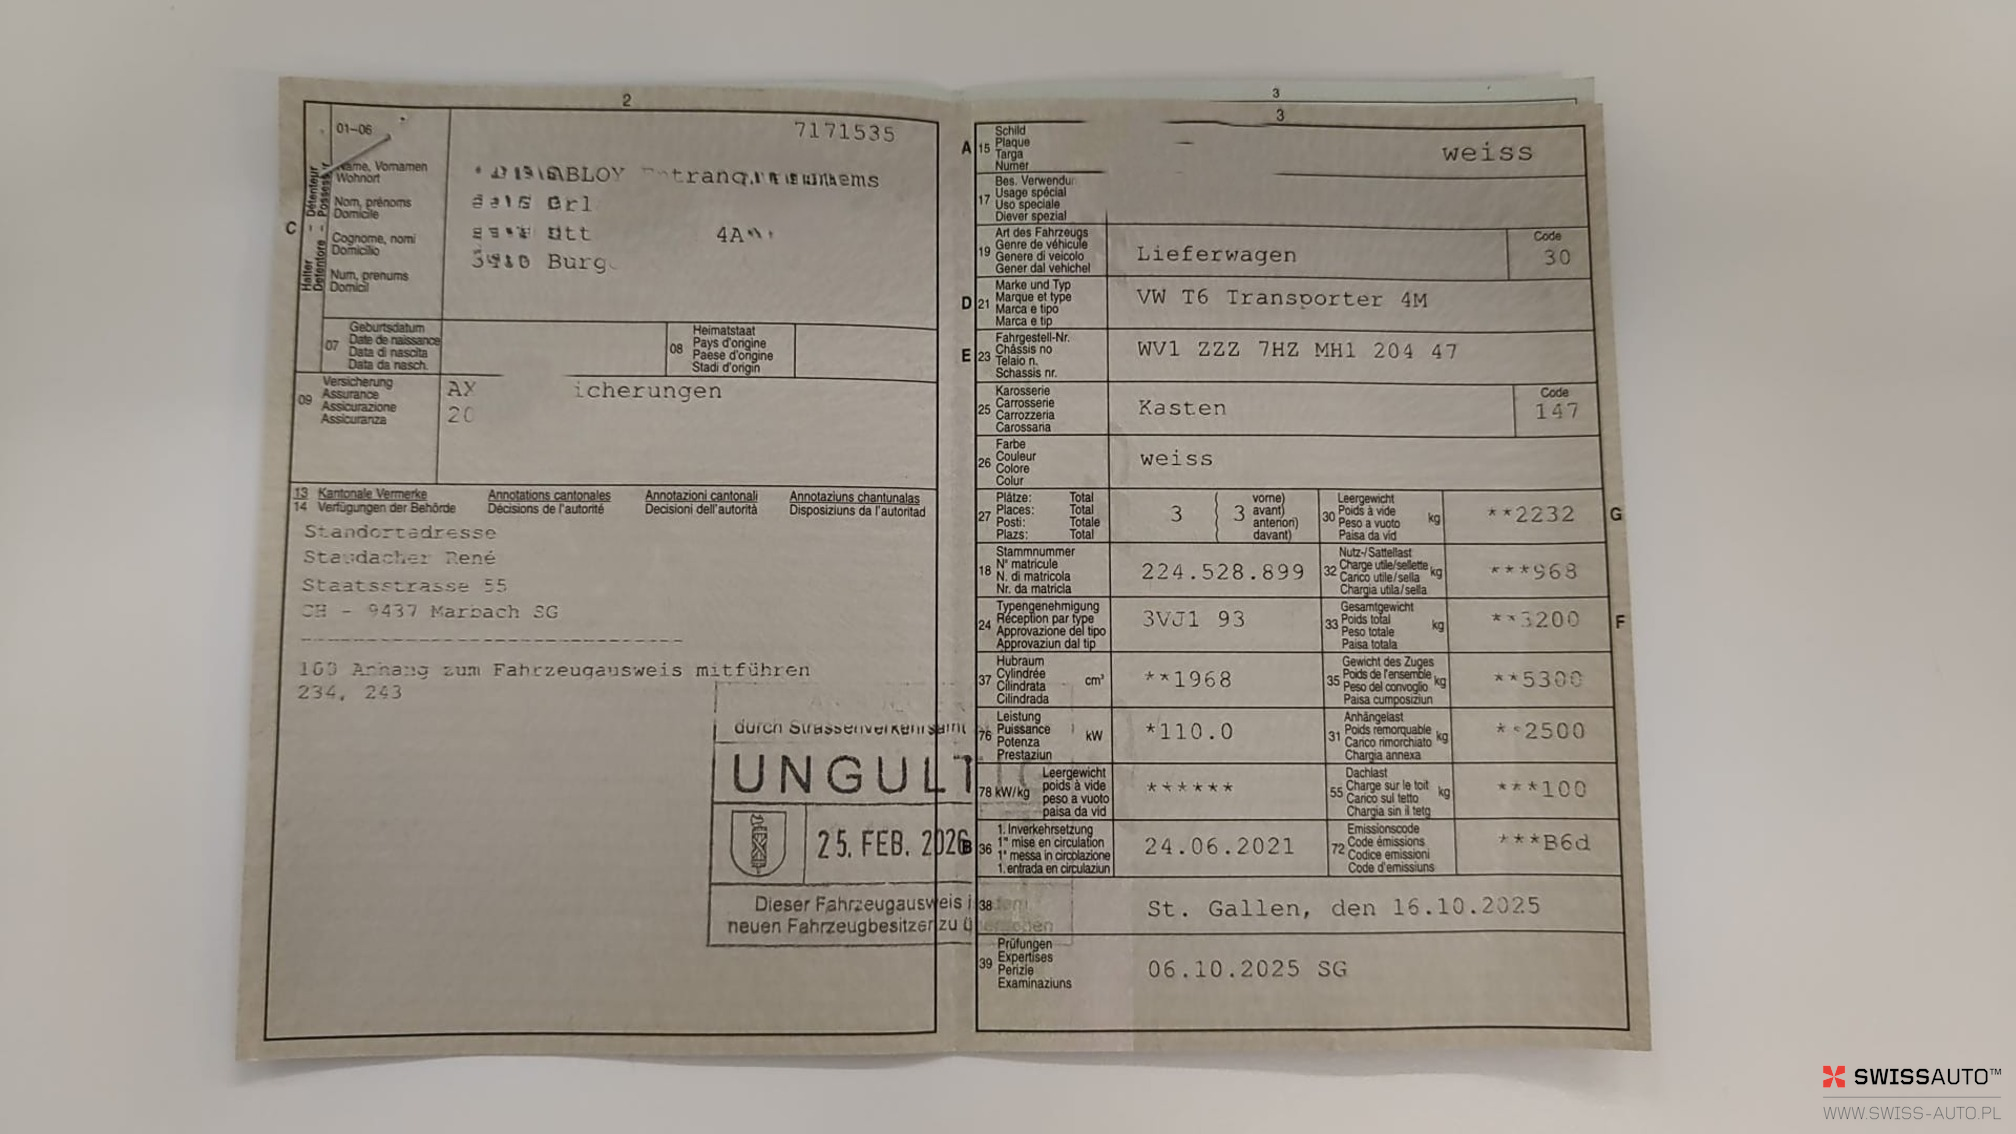 2
01–06
7171535
Name, Vornamen
Wohnort
Nom, prénoms
Domicile
Cognome, nomi
Domicilio
Num, prenums
Domicil
C
Halter Détenteur
Detentore
4A
07
Geburtsdatum
Date de naissance
Data di nascita
Data da nasch.
08
Heimatstaat
Pays d'origine
Paese d'origine
Stadi d'origin
09
Versicherung
Assurance
Assicurazione
Assicuranza
AX icherungen
20
13 Kantonale Vermerke Annotations cantonales Annotazioni cantonali Annotaziuns chantunalas
14 Verfügungen der Behörde Décisions de l'autorité Decisioni dell'autorità Disposiziuns da l'autoritad
Standortadresse
René
Staatsstrasse 55
CH - 9437 Marbach SG
Anhang zum Fahrzeugausweis mitführen
234, 243
durch
UNGÜLT
25. FEB. 2026
Dieser Fahrzeugausweis i
neuen Fahrzeugbesitzer zu ü
3
3
A 15
Schild
Plaque
Targa
Numer
weiss
17
Bes. Verwendu
Usage spécial
Uso speciale
Diever spezial
19
Art des Fahrzeugs
Genre de véhicule
Genere di veicolo
Gener dal vehichel
Lieferwagen
Code
30
D 21
Marke und Typ
Marque et type
Marca e tipo
Marca e tip
VW T6 Transporter 4M
E 23
Fahrgestell-Nr.
Châssis no
Telaio n.
Schassis nr.
WV1 ZZZ 7HZ MH1 204 47
25
Karosserie
Carrosserie
Carrozzeria
Carossaria
Kasten
Code
147
26
Farbe
Couleur
Colore
Colur
weiss
27
Plätze: Total
Places: Total
Posti: Totale
Plazs: Total
3 ( 3
vorne)
avant)
anteriori)
davant)
30
Leergewicht
Poids à vide
Peso a vuoto
Paisa da vid
kg
**2232
G
18
Stammnummer
N° matricule
N. di matricola
Nr. da matricla
224.528.899
32
Nutz-/Sattellast
Charge utile/sellette
Carico utile/sella
Chargia utila/sella
kg
***968
24
Typengenehmigung
Réception par type
Approvazione del tipo
Approvaziun dal tip
3VJ1 93
33
Gesamtgewicht
Poids total
Peso totale
Paisa totala
kg
**3200
F
37
Hubraum
Cylindrée
Cilindrata
Cilindrada
cm³
**1968
35
Gewicht des Zuges
Poids de l'ensemble
Peso del convoglio
Paisa cumposiziun
kg
**5300
76
Leistung
Puissance
Potenza
Prestaziun
kW
*110.0
31
Anhängelast
Poids remorquable
Carico rimorchiato
Chargia annexa
kg
**2500
78 kW/kg
Leergewicht
poids à vide
peso a vuoto
paisa da vid
******
55
Dachlast
Charge sur le toit
Carico sul tetto
Chargia sin il tetg
kg
***100
B 36
1. Inverkehrsetzung
1re mise en circulation
1a messa in circolazione
1. entrada en circulaziun
24.06.2021
72
Emissionscode
Code émissions
Codice emissioni
Code d'emissiuns
***B6d
38
St. Gallen, den 16.10.2025
39
Prüfungen
Expertises
Perizie
Examinaziuns
06.10.2025 SG
SWISSAUTO™
WWW.SWISS-AUTO.PL